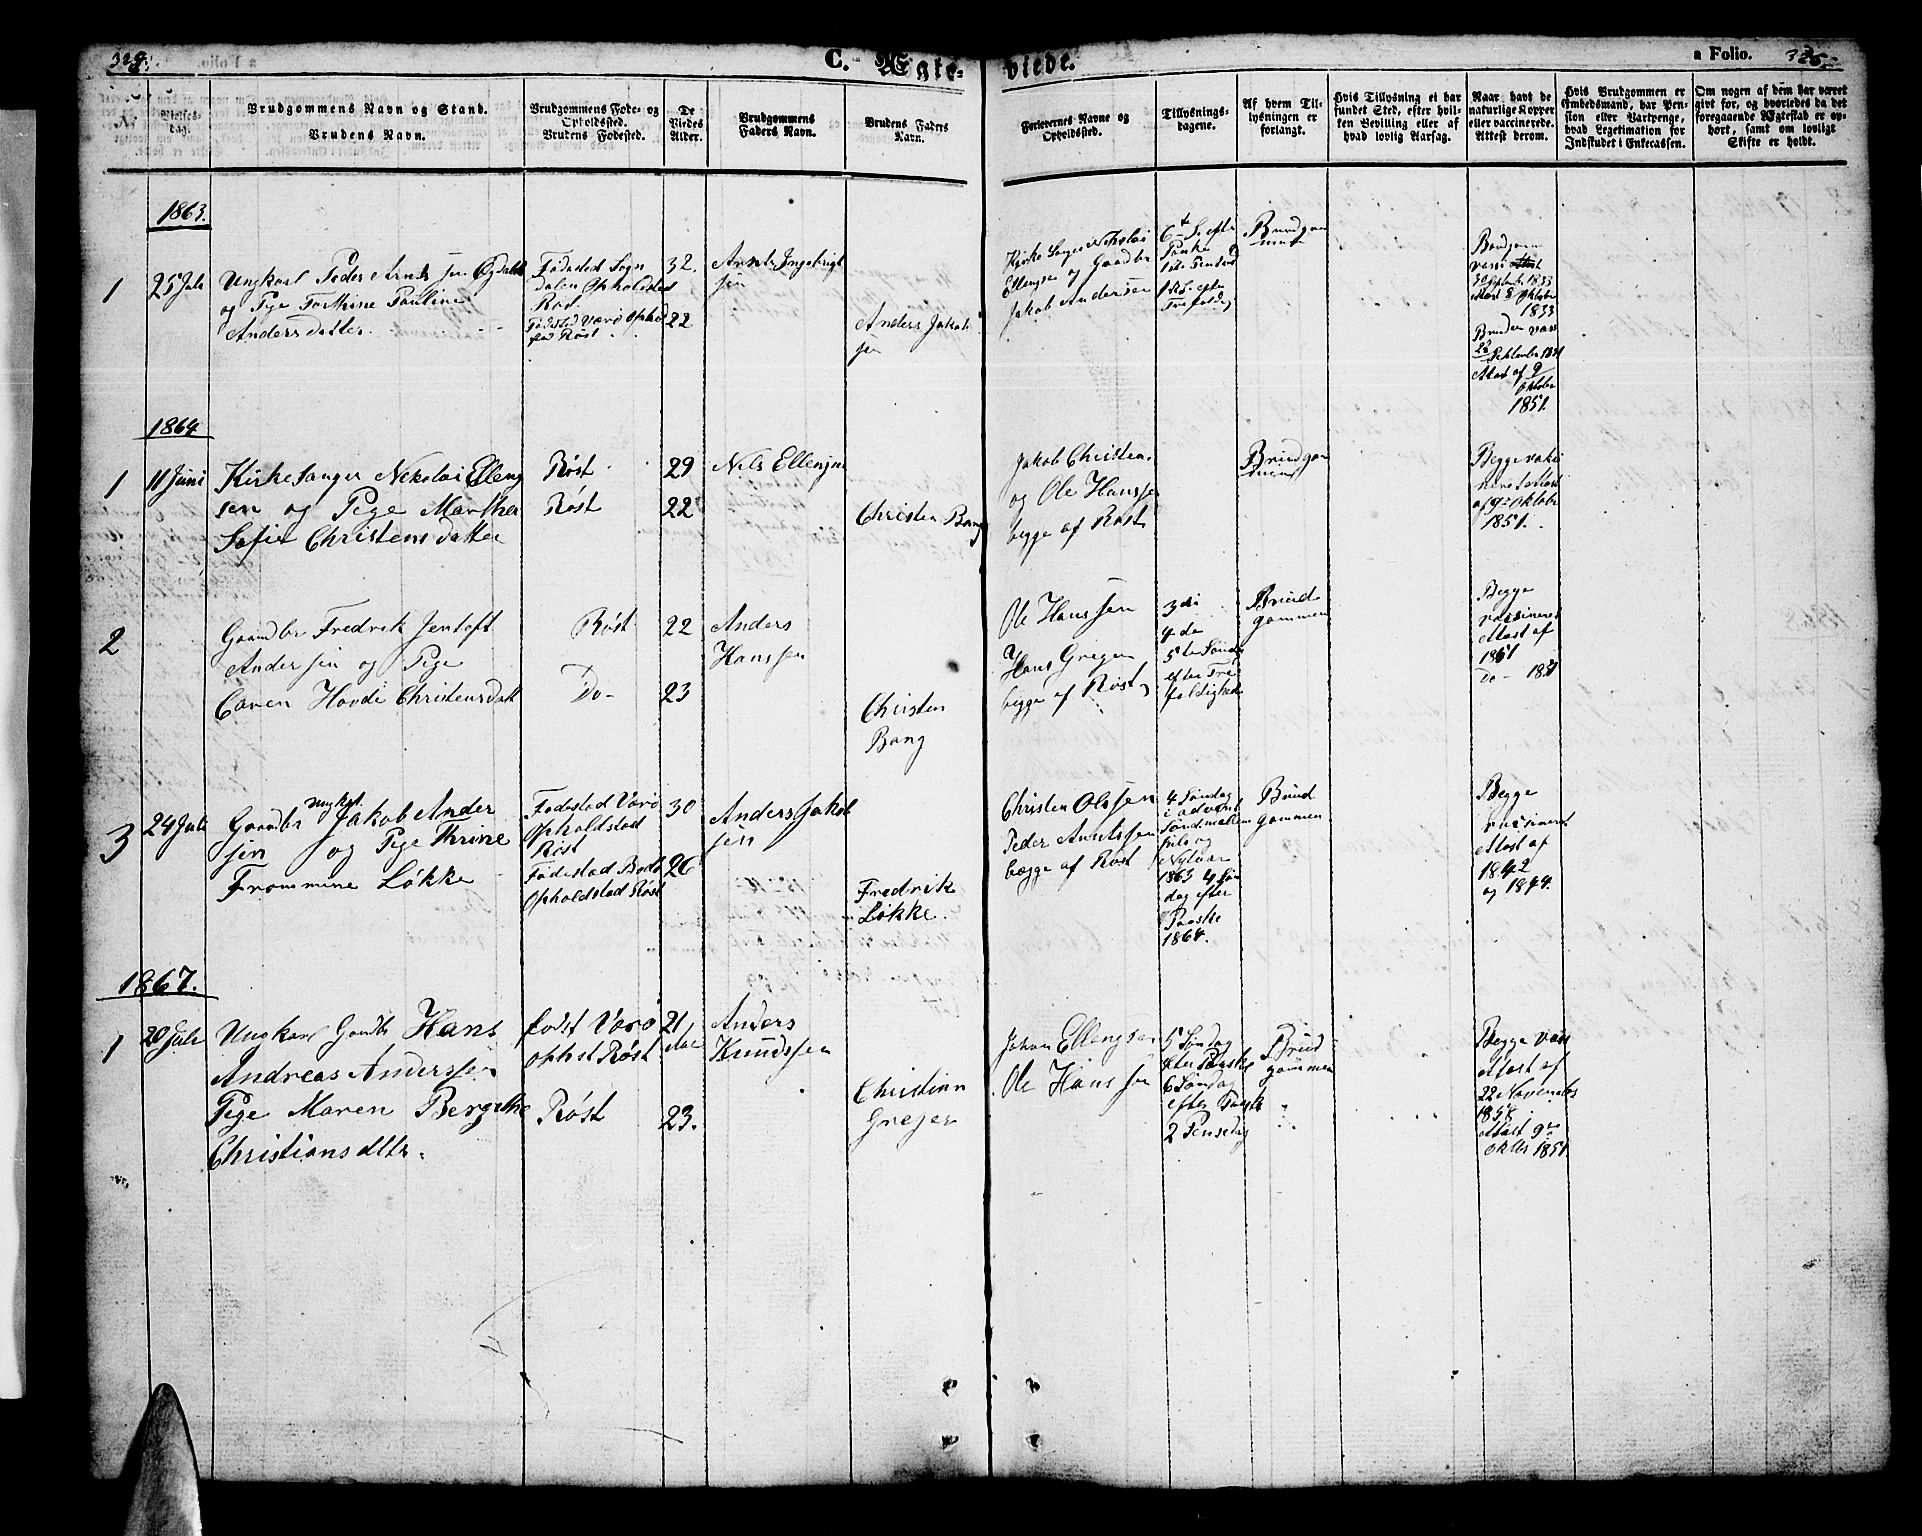 C. Ægte-
viede.
a Folio.
Vielses-
dag.
Brudgommens Navn og Stand.
Brudens Navn.
Brudgommens Føde- og
Opholdssted.
Brudens Fødested.
De
Viedes
Alder.
Brudgommens
Faders Navn.
Brudens Faders
Navn.
Forlovernes Navne og
Opholdssted.
Tillysnings-
dagene.
Af hvem Til-
lysningen er
forlangt.
Hvis Tillysning ei har
fundet Sted, efter hvil-
ken Bevilling eller af
hvad lovlig Aarsag.
Naar havt de
naturlige Kopper
eller vaccinerede.
Attest derom.
Hvis Brudgommen er
Embedsmand, har Pen-
sion eller Vartpenge,
hvad Legetimation for
Indskudet i Enkecassen.
Om nogen af dem har været
givt før, og hvorledes da det
foregaaende Ægtestad er op-
hørt, samt om lovligt
Skifte er holdt.
1863.
1
25 Juli
Ungkarl Peder Arnts sen
og Pige
Anders datter
Fødested Sogn
Opholdsted
Fødested Værø Ophold
Røst
32.
22
Arnt Ingebrigt
sen
Anders Jakob
sen
Kirke Sanger Nikolai
Ellengsen og Gaardbr
Jakob Anderssen
6te S. efter
Paaske
1ste Pensedag
1 S. efter
Trefoldig
Brudgom
men
Brudgom
30 September 1833
Attest 8 Oktober
1833
Bruden vass
23 September 1851
Attest af 9
Oktober
1851.
1864
1
11 Juni
Kirke Sanger Nekolai Elleng
sen og Pige Marthea
Sofie Christensdatter
Røst
Røst
29
22
Nils Ellensen
Christen Bang
Jakob Christen
og Ole Hanssen
begge af Røst
Brudgom
men
Begge vaksi
nere Attest
af 9de Oktober
1851.
2
Gaardbr Fredrik Jentoft
Andersen og Pige
Caren Hovdi Christensdatt
Røst
Do-
22
23
Anders
Hanssen
Christen
Bang
Ole Hanssen
Hans Greger
begge af Røst
3di
4de
5te Sønd
efter Tre
foldighed
Brud
gommen
Begge
vassineret
Attest af
1861
Do- 1851
3
24 Juli
Gaardbr Ungkarl Jakob Ander
sen og Pige Thrine
Frommene Løkke
Fødestad Værø
Opholdstad
Røst
Fødestad Bodø
Opholdstad Røst
30
26
Anders Jakob
sen
Fredrik
Løkke.
Christen Olssen
Peder Arntssen
begge af Røst
4 Søndag
i advent
Søndmellem
Jule og
Nytaar
1863 4 Søn
dag efter
Paaske
1864.
Brud
gommen
Begge
vassineret
Attest af
1842
og 1844.
1867.
1
20 Juli
Ungkarl Gaardb Hans
Andreas Anderssen
Pige Maren Bergithe
Christiansdtr.
født Værø
ophst Røst
Røst
21
23.
Anders
Knudssen
Christian
Greger
Johan Ellengsen
Ole Hanssen
5 Søndag
efter Paaske
6 Søndag
efter Paask
2 Pensedag
Brud
gommen
Begge vass
Attest af
22 November
1858
Attest 9de
Oktbr 1851